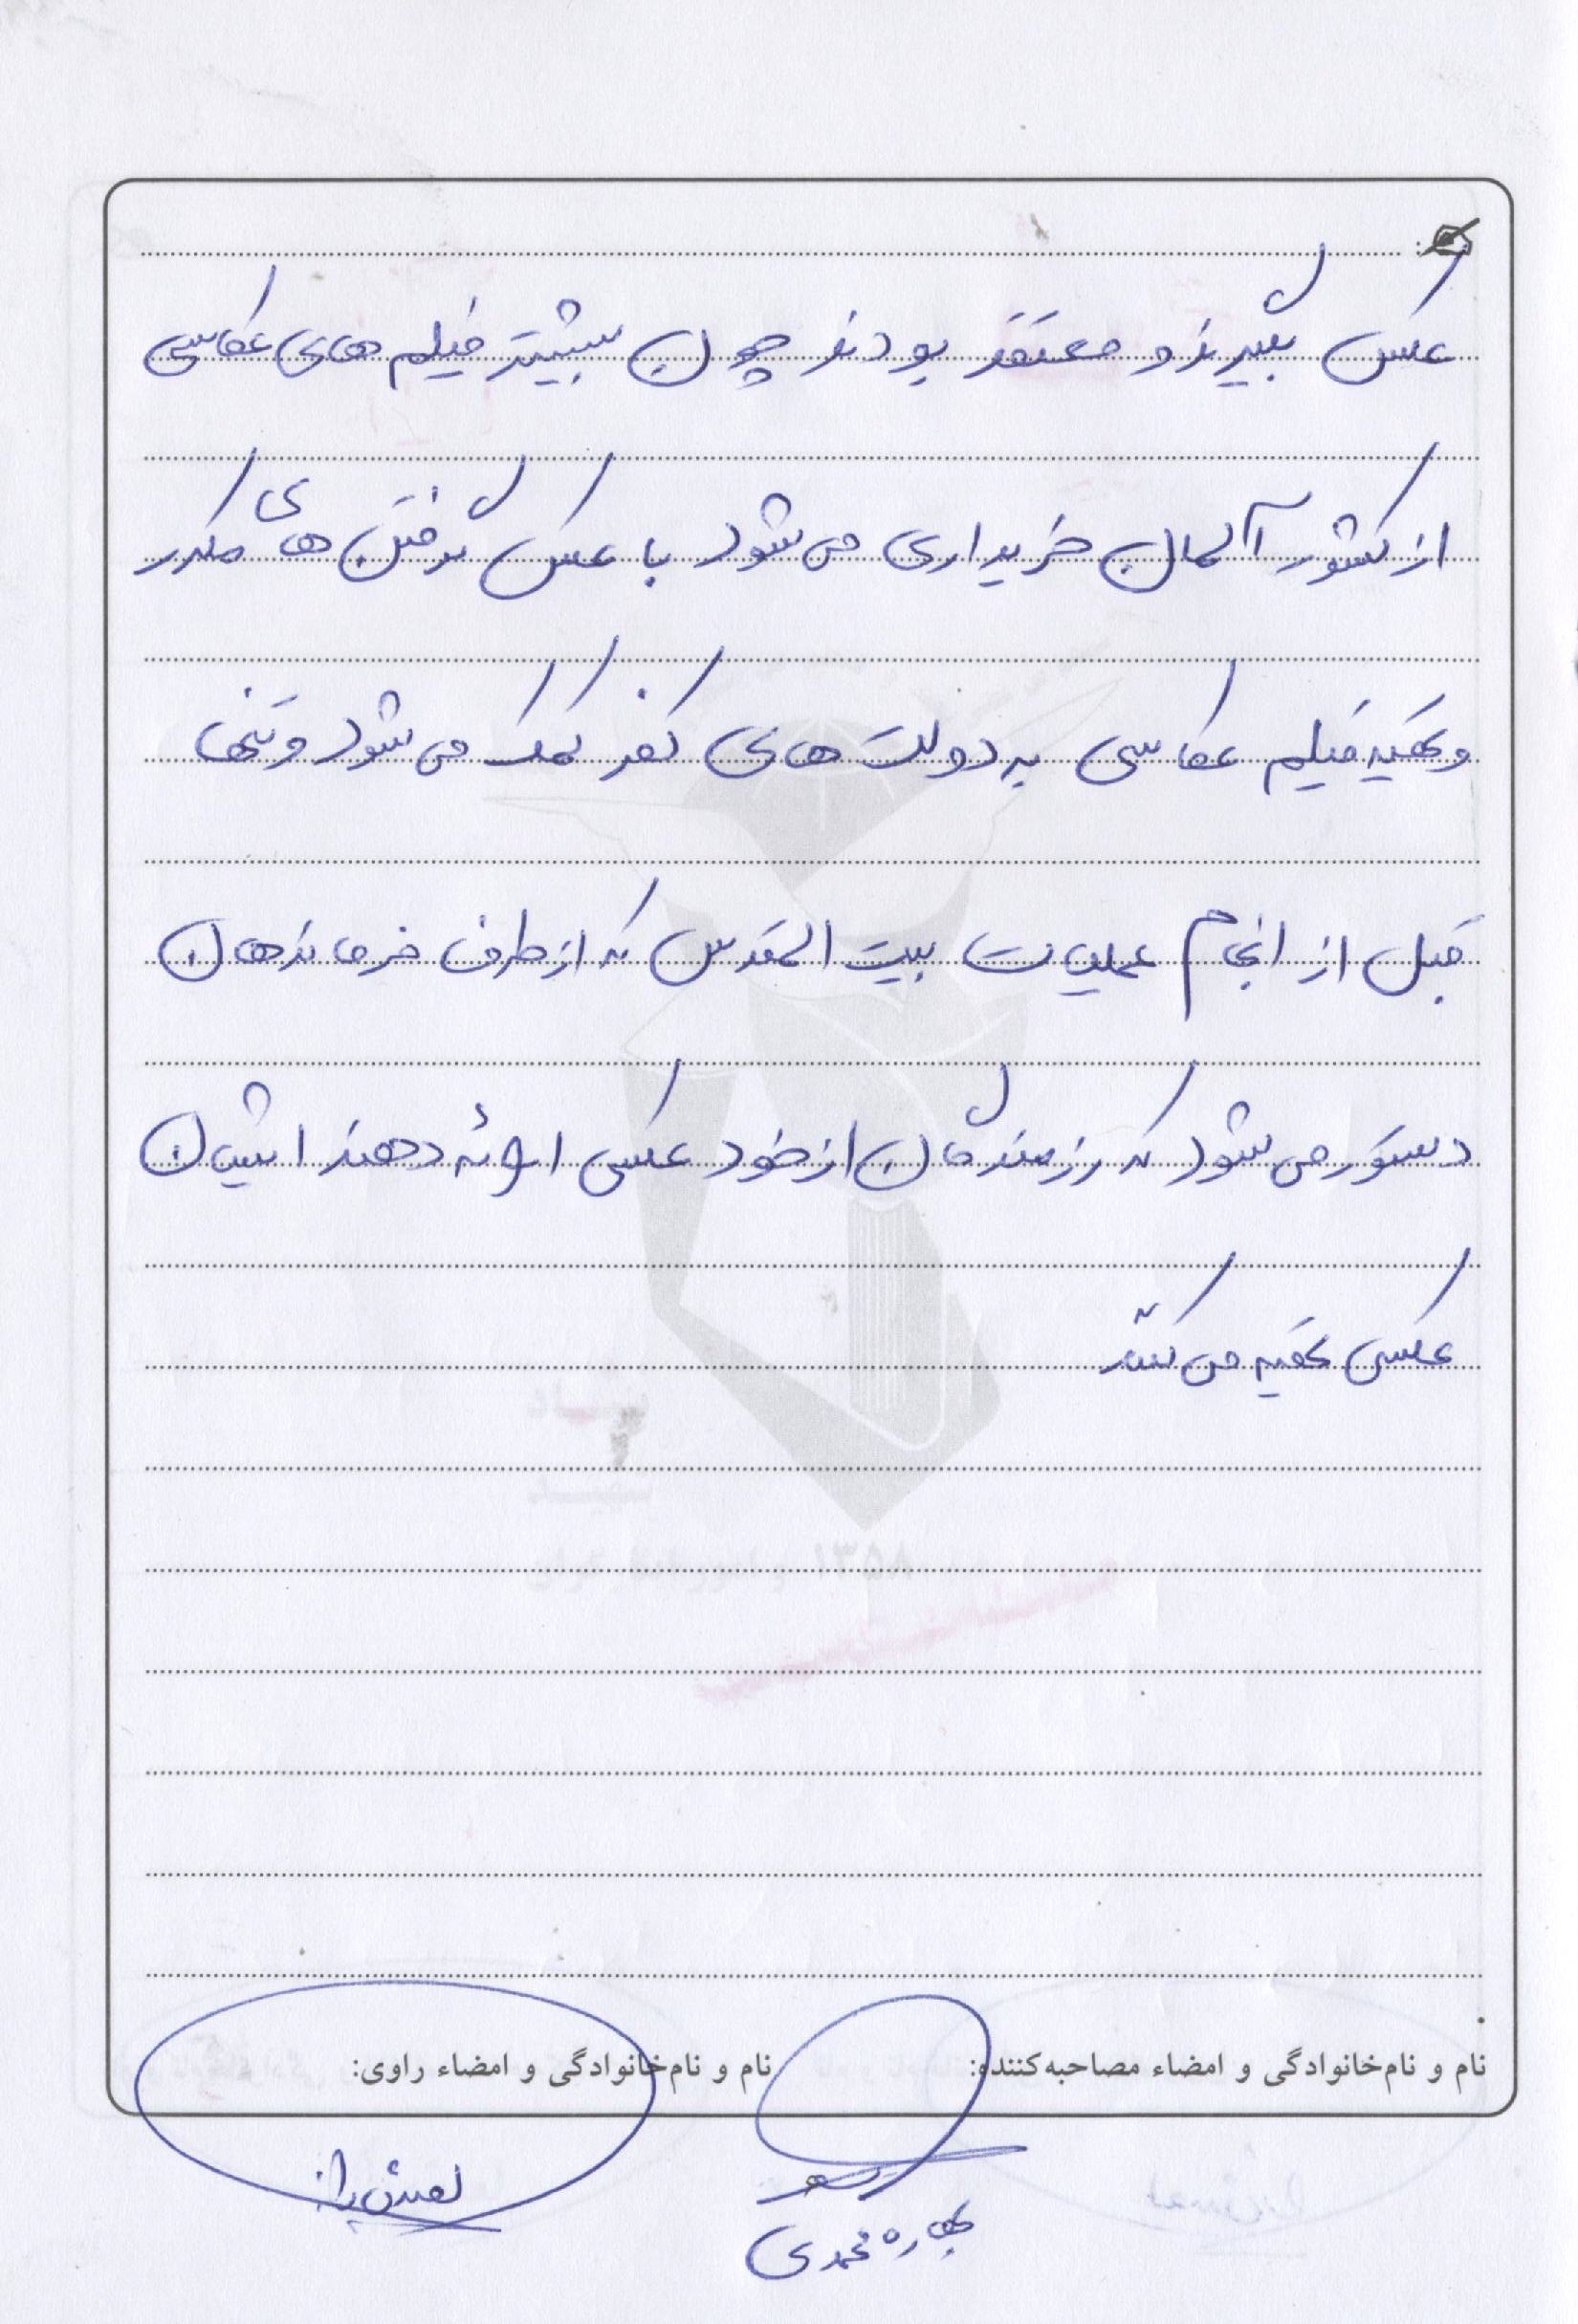 عکس بگیرند و معتقد بودند چون بیشتر فیلم های عکاسی
از کشور آلمان خریداری می شود با عکس گرفتن های مکرر
و تهیه فیلم عکاسی به دولت های کفر کمک می شود و تنها
قبل از انجام عملیات بیت المقدس که از طرف فرماندهان
دستور می شود که رزمندگان از خود عکسی ارائه دهند ایشان
عکسی تهیه می کنند
نام و نام‌خانوادگی و امضاء مصاحبه‌کننده:
نام و نام‌خانوادگی و امضاء راوی:
بهاره محمدی
۱۳۵۸